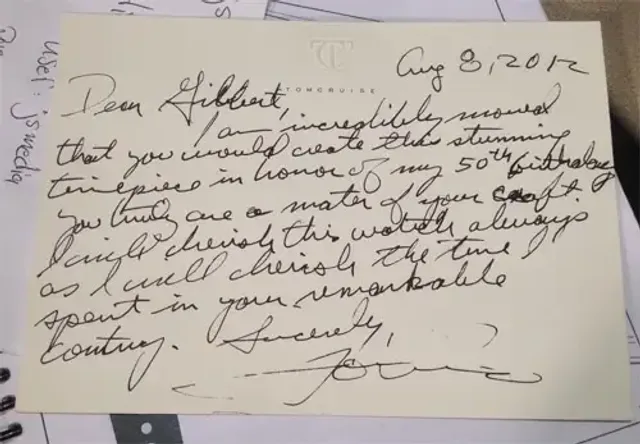 TC
TOMCRUISE
Aug 8, 2012
Dear Gilbert,
I am incredibly moved
that you would create this stunning
timepiece in honor of my 50th birthday
you truly are a mater of your craft
I will cherish this watch always
as I will cherish the time I
spent in your remarkable
contry. Sincerely,
Tom
user: jsmedia